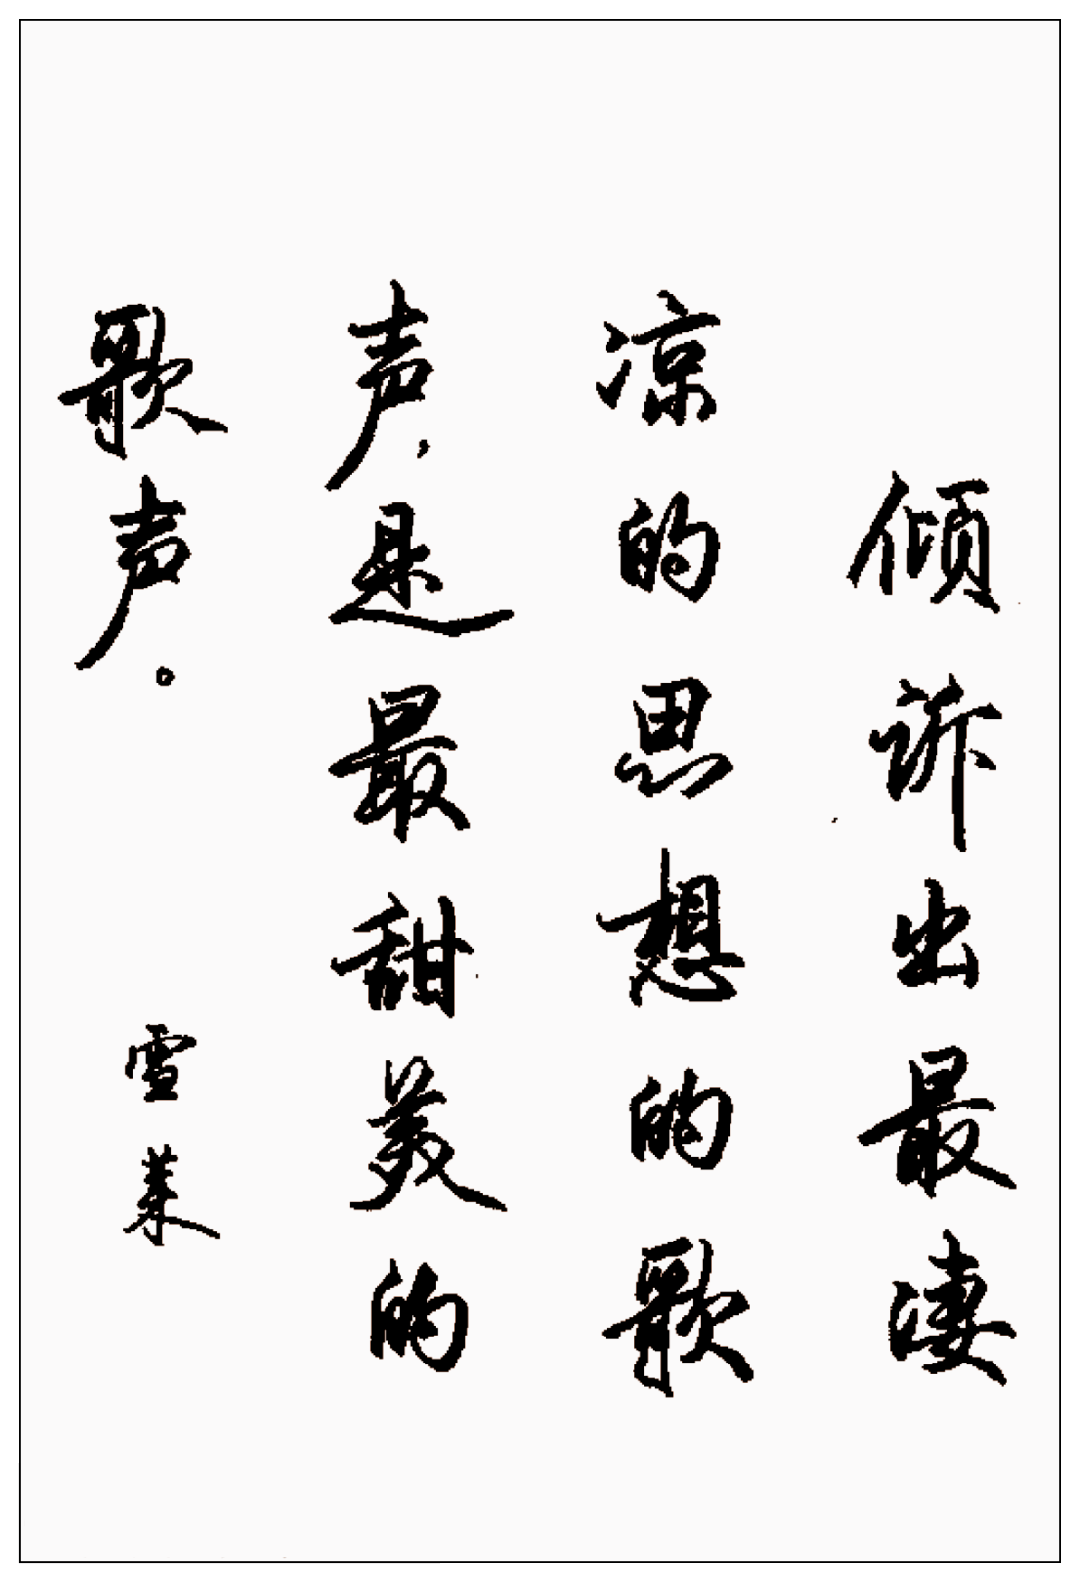 倾诉出最凄
凉的思想的歌
声，是最甜美的
歌声。
雪莱